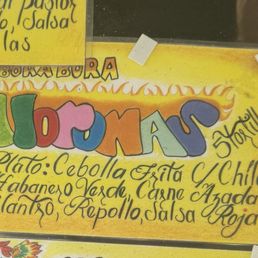 al Pastor
o, Salsa
las
BORA BURA
lloronas
5 Tortill
Plato: Cebolla Frita y Chile
Habanero Verde, Carne Azada
ilantro, Repollo, Salsa Roja